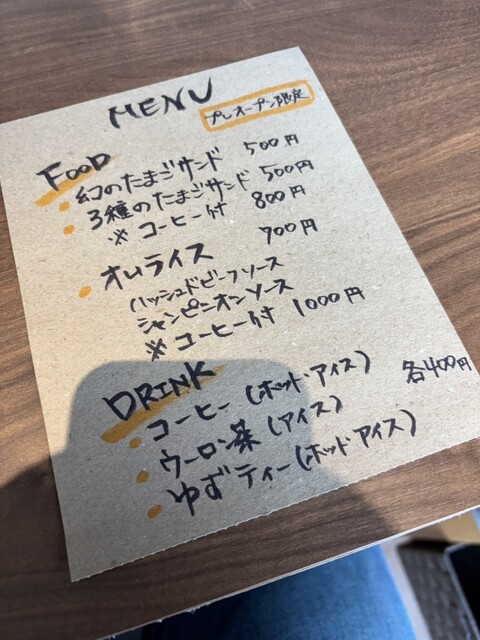 MENU
プレオープン限定
FOOD
幻のたまごサンド 500円
3種のたまごサンド 500円
※コーヒー付 800円
オムライス 900円
ハッシュドビーフソース
シャンピニオンソース
※コーヒー付 1000円
DRINK
コーヒー(ホット・アイス) 各400円
ウーロン茶(アイス)
ゆずティー(ホット・アイス)